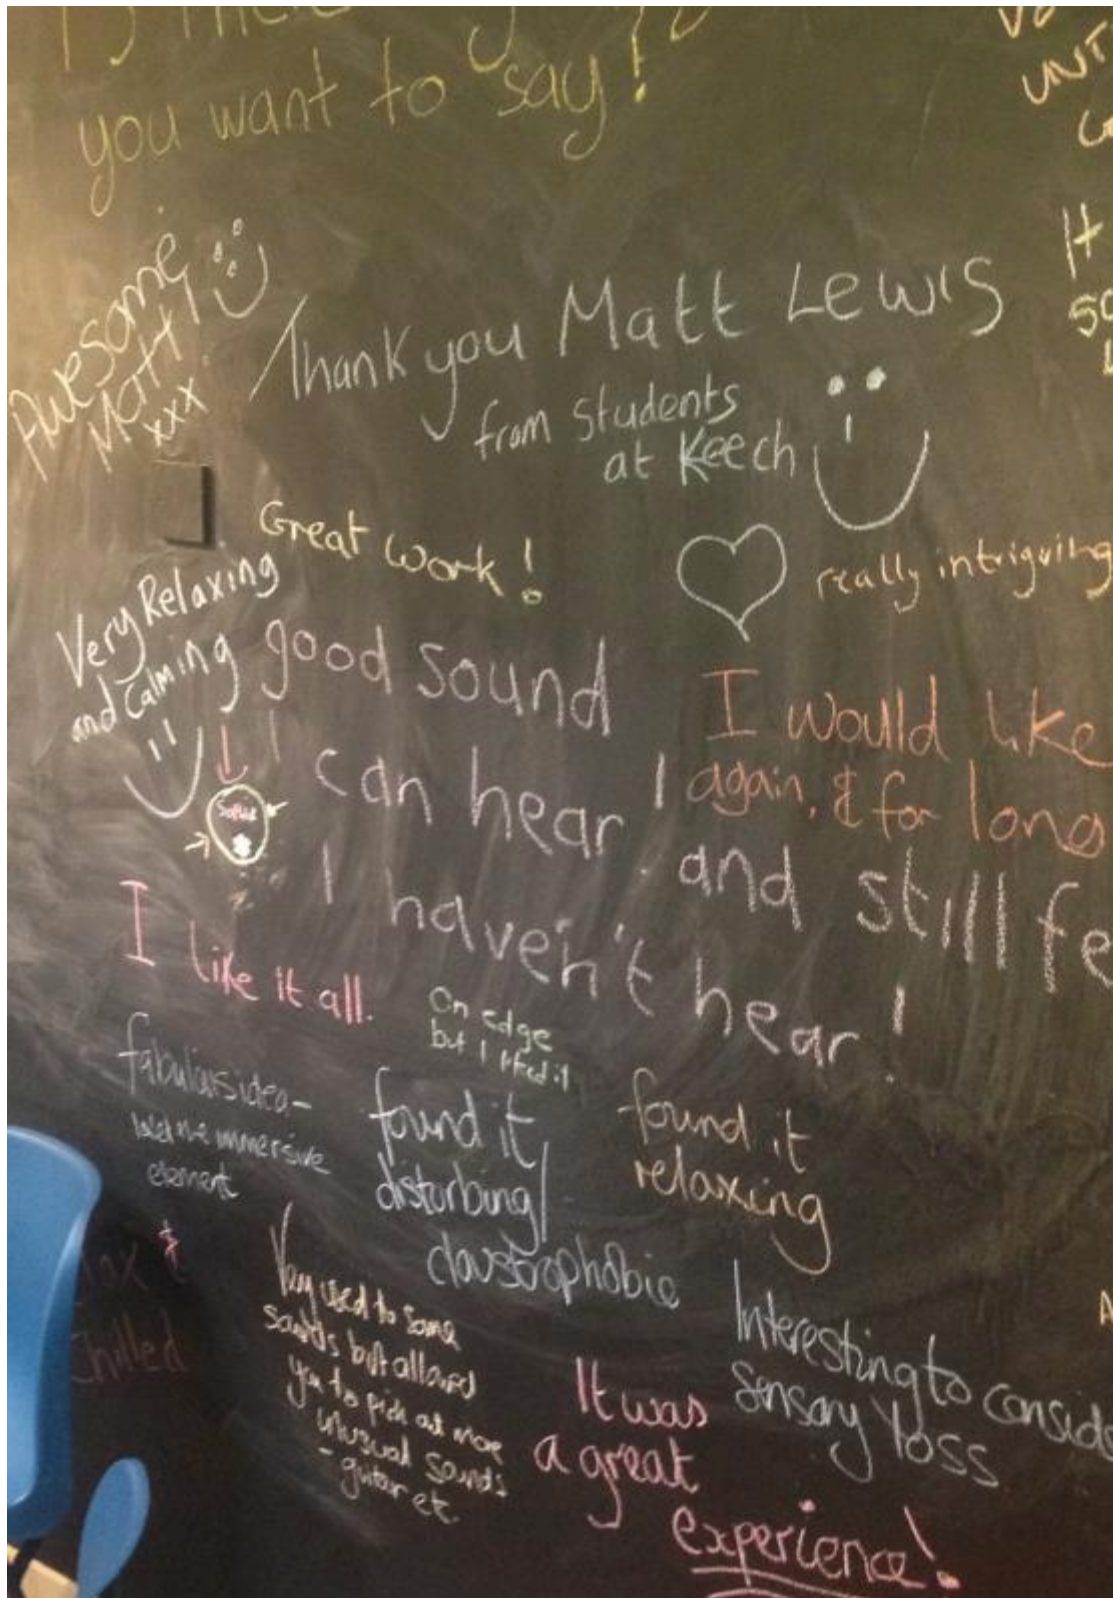 you want to say!
UNT
Awesome
Matt!
xxx
Thank you Matt Lewis
from Students
at Keech
Great work!
really intriguing
Very Relaxing
and Calming
good sound
I would like
again, & for long
I can hear!
and still fe
I haven't hear!
Sophie
I like it all.
On edge
but I liked it
fabulous idea -
immersive
element
found it
disturbing/
claustrophobic
found it
relaxing
&
Chilled
Very used to some
sounds but allowed
you to pick out more
unusual sounds
- guitar etc
Interesting to conside
sensory loss
It was
a great
experience!